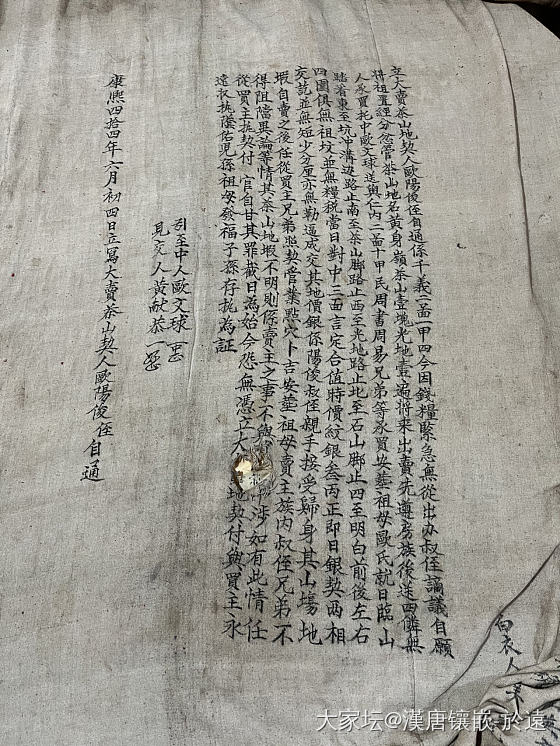 立大賣茶山地契人歐陽俊侄自通係千義二啚一甲四今因錢糧緊急無從出办叔侄謫議自願
將祖置經分然管茶山地名黃身嶺茶山壹塊光地壹遍將來出賣先遵房族後送四隣無
人承買托中歐文球送與仁內二啚十甲民周書周易兄弟等承買安塟祖母歐氏就日臨山
踏看東至坑中溝边路止南至茶山脚路止西至光地路止北至石山脚止四至明白前後左右
四圍俱無祖坟並無糧税當日對中三面言定合值時價紋銀叁丙正即日銀契兩相
交訖並無短少分厘亦無勒逼成交其地價銀係陽俊叔侄親手接受歸身其山塲地
暇自賣之後任從買主兄弟照契管業點穴卜吉安塟祖母賣主族內叔侄兄弟不
得阻擋異論等情其茶山地暇不明則係賣主之事不與 涉如有此情任
從買主執契付 官自甘其罪截日為始今恐無憑立大 地契付與買主永
遠收执隂佑児孫祖母發福子孫存执為証
引至中人歐文球
見交人黃献恭
康熙四拾四年六月初四日立寫大賣茶山契人歐陽俊侄自通
白衣人
大家坛@漢唐镶嵌_於遠